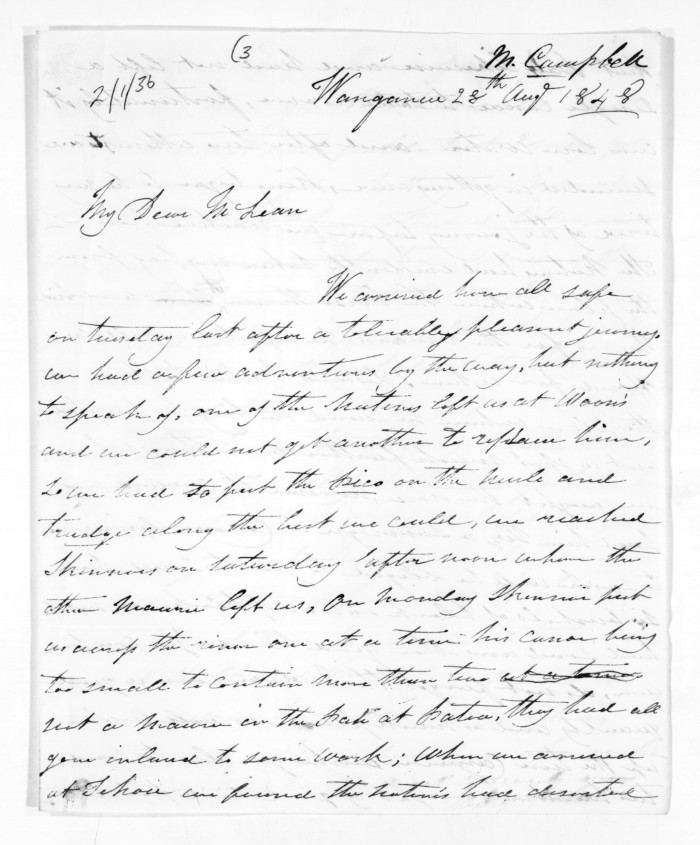 (3
M. Campbell
2/1/36
Wanganui 28th Augt 1848
My Dear McLean
We arrived here all safe
on tuesday last after a tolerably pleasant journey
we had a few adventures by the way, but nothing
to speak of, one of the Natives left us at Woon's
and we could not get another to replace him,
so we had to put the Pico on the Mule and
trudge along the best we could, we reached
Skinners on Saturday after noon where the
other Maurie left us, On Monday Skinner put
us across the river one at a time his canoe being
too small to contain more than two at a time
not a Maurie in the Pah at Patea, they had all
gone inland to some work; When we arrived
at we found the Natives had deserted